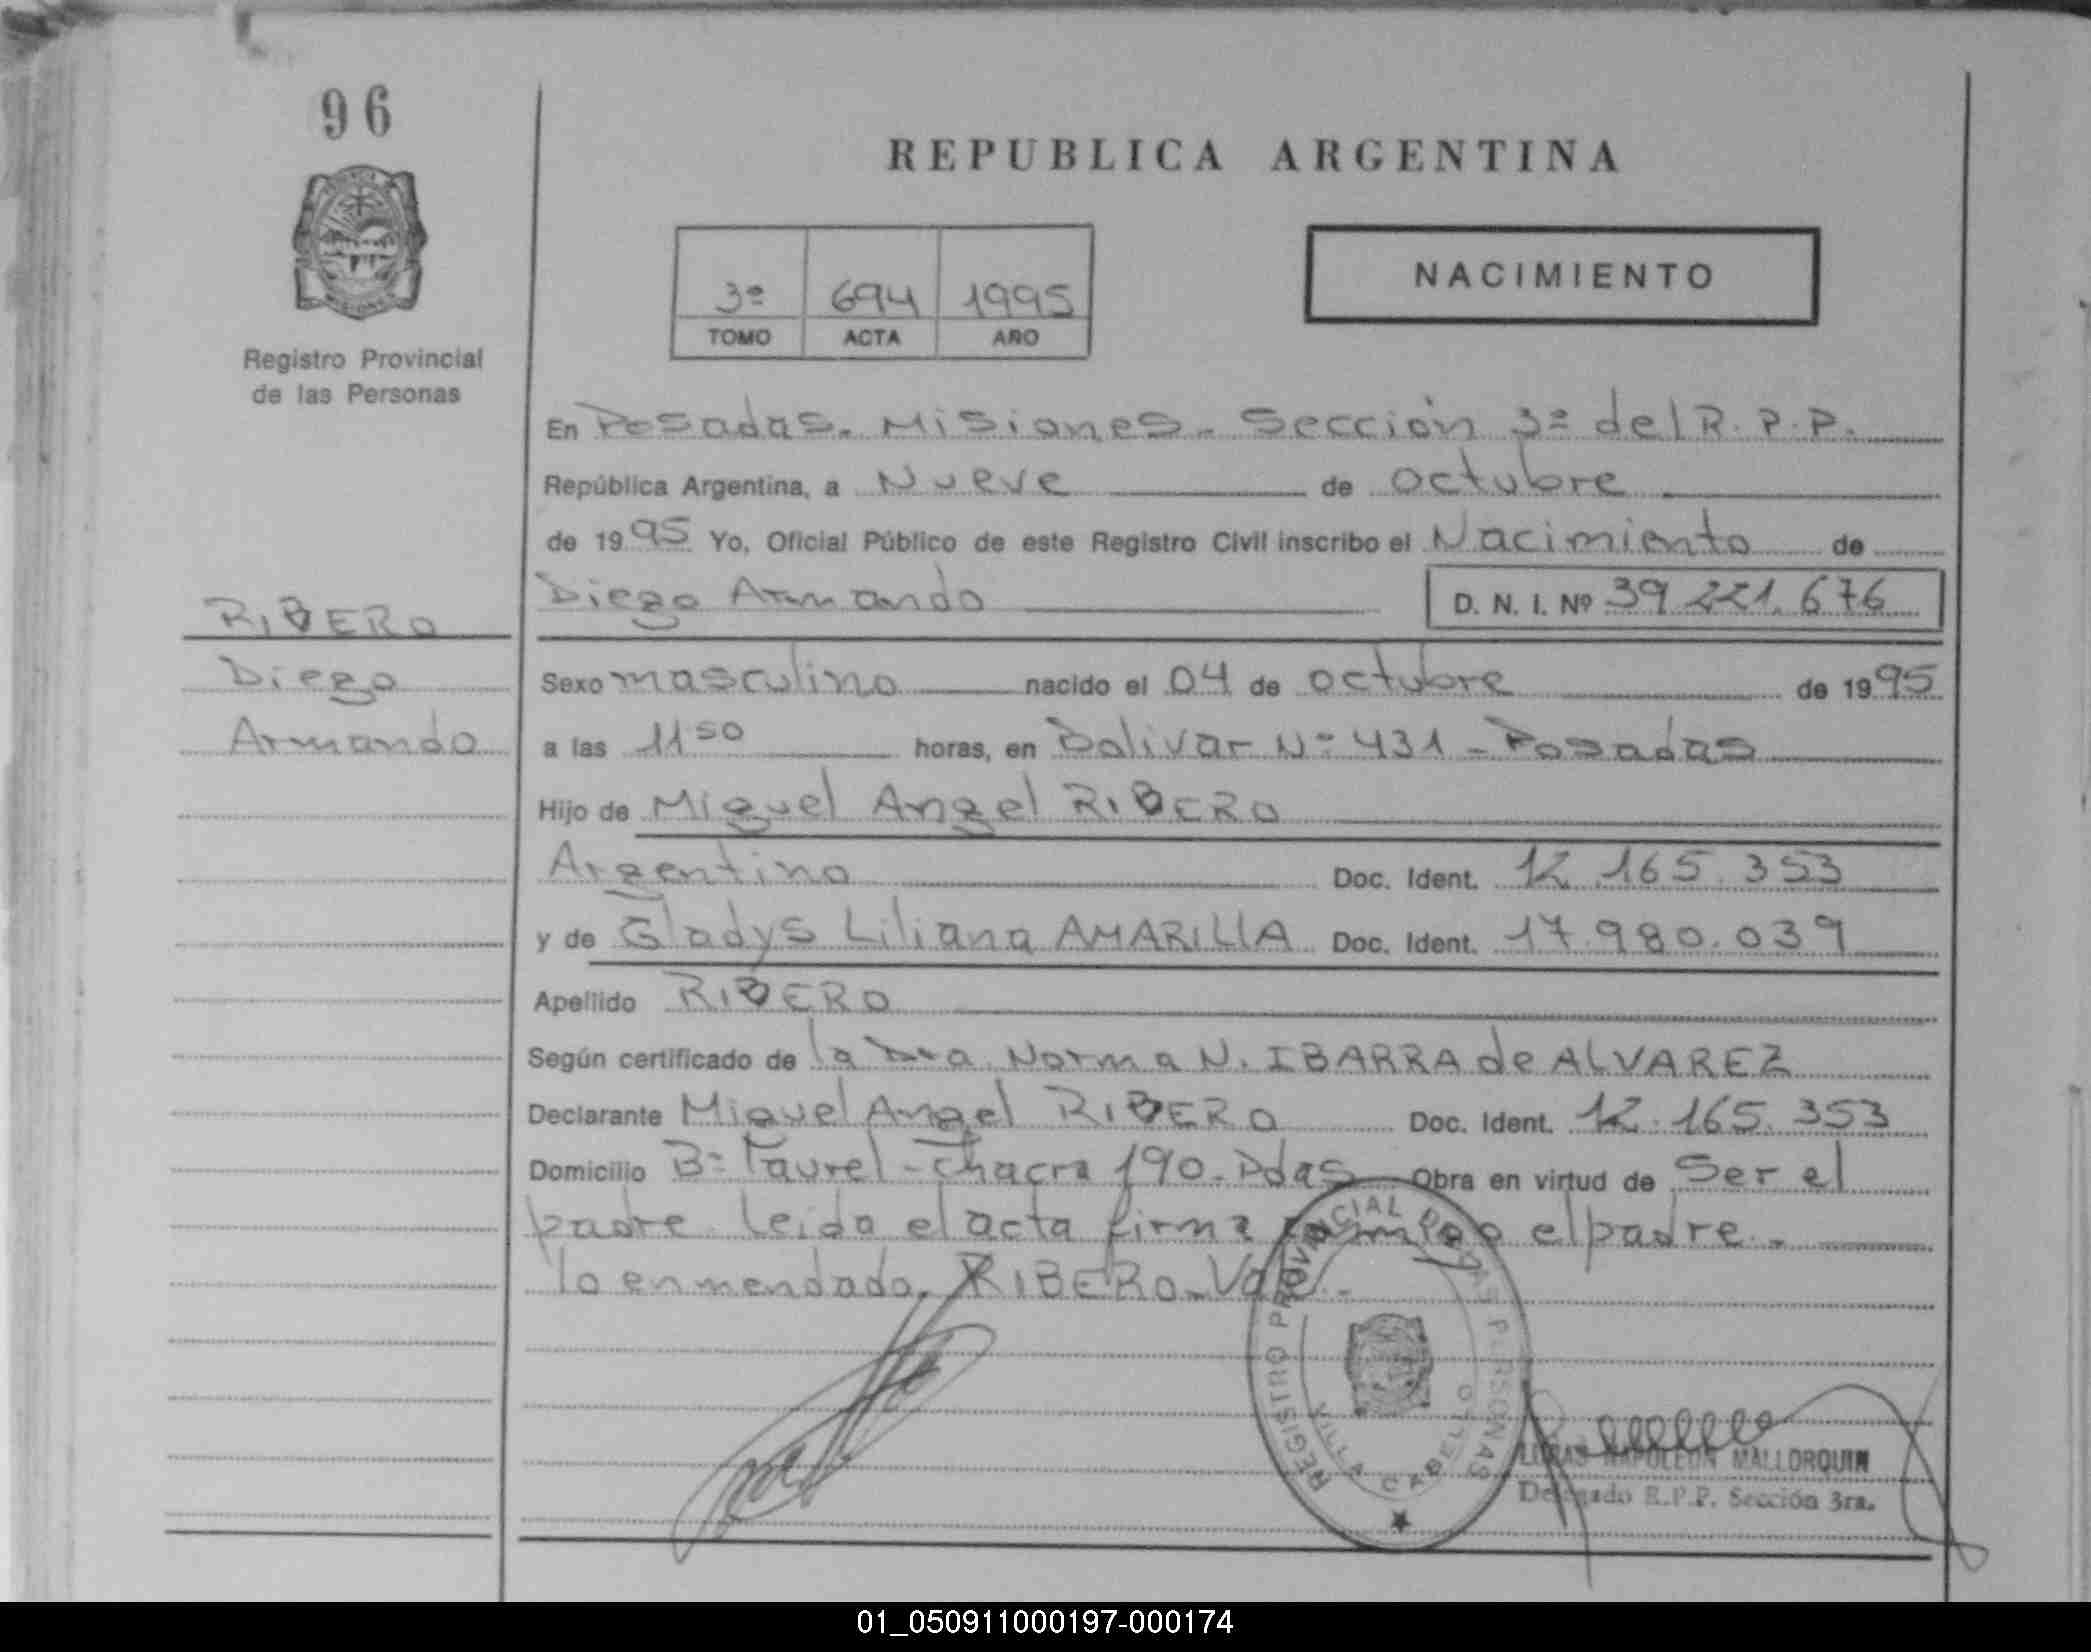 96
REPUBLICA ARGENTINA
3º 694 1995
TOMO ACTA AÑO
NACIMIENTO
Registro Provincial
de las Personas
En Posadas. Misiones - Sección 3ª del R.P.P.
República Argentina, a Nueve de octubre
de 1995 Yo, Oficial Público de este Registro Civil inscribo el Nacimiento de
Diego Armando D. N. I. Nº 39.221.676
RIBERO
Diego
Armando
Sexo masculino nacido el 04 de octubre de 1995
a las 11 50 horas, en Bolivar Nº 431 - Posadas
Hijo de Miguel Angel RIBERO
Argentino Doc. Ident. 12.165.353
y de Gladys Liliana AMARILLA Doc. Ident. 17.980.039
Apellido RIBERO
Según certificado de la Dra. Norma N. IBARRA de ALVAREZ
Declarante Miguel Angel RIBERO Doc. Ident. 12.165.353
Domicilio Bº Laurel - Chacra 190 - Pdas Obra en virtud de Ser el
padre. Leida el acta firma conmigo el padre. -
lo enmendado. RIBERO - Vale. -
REGISTRO PROVINCIAL DE LAS PERSONAS
VILLA CABELLO
LUCAS NAPOLEON MALLORQUIN
Delegado R.P.P. Sección 3ra.
01_050911000197-000174